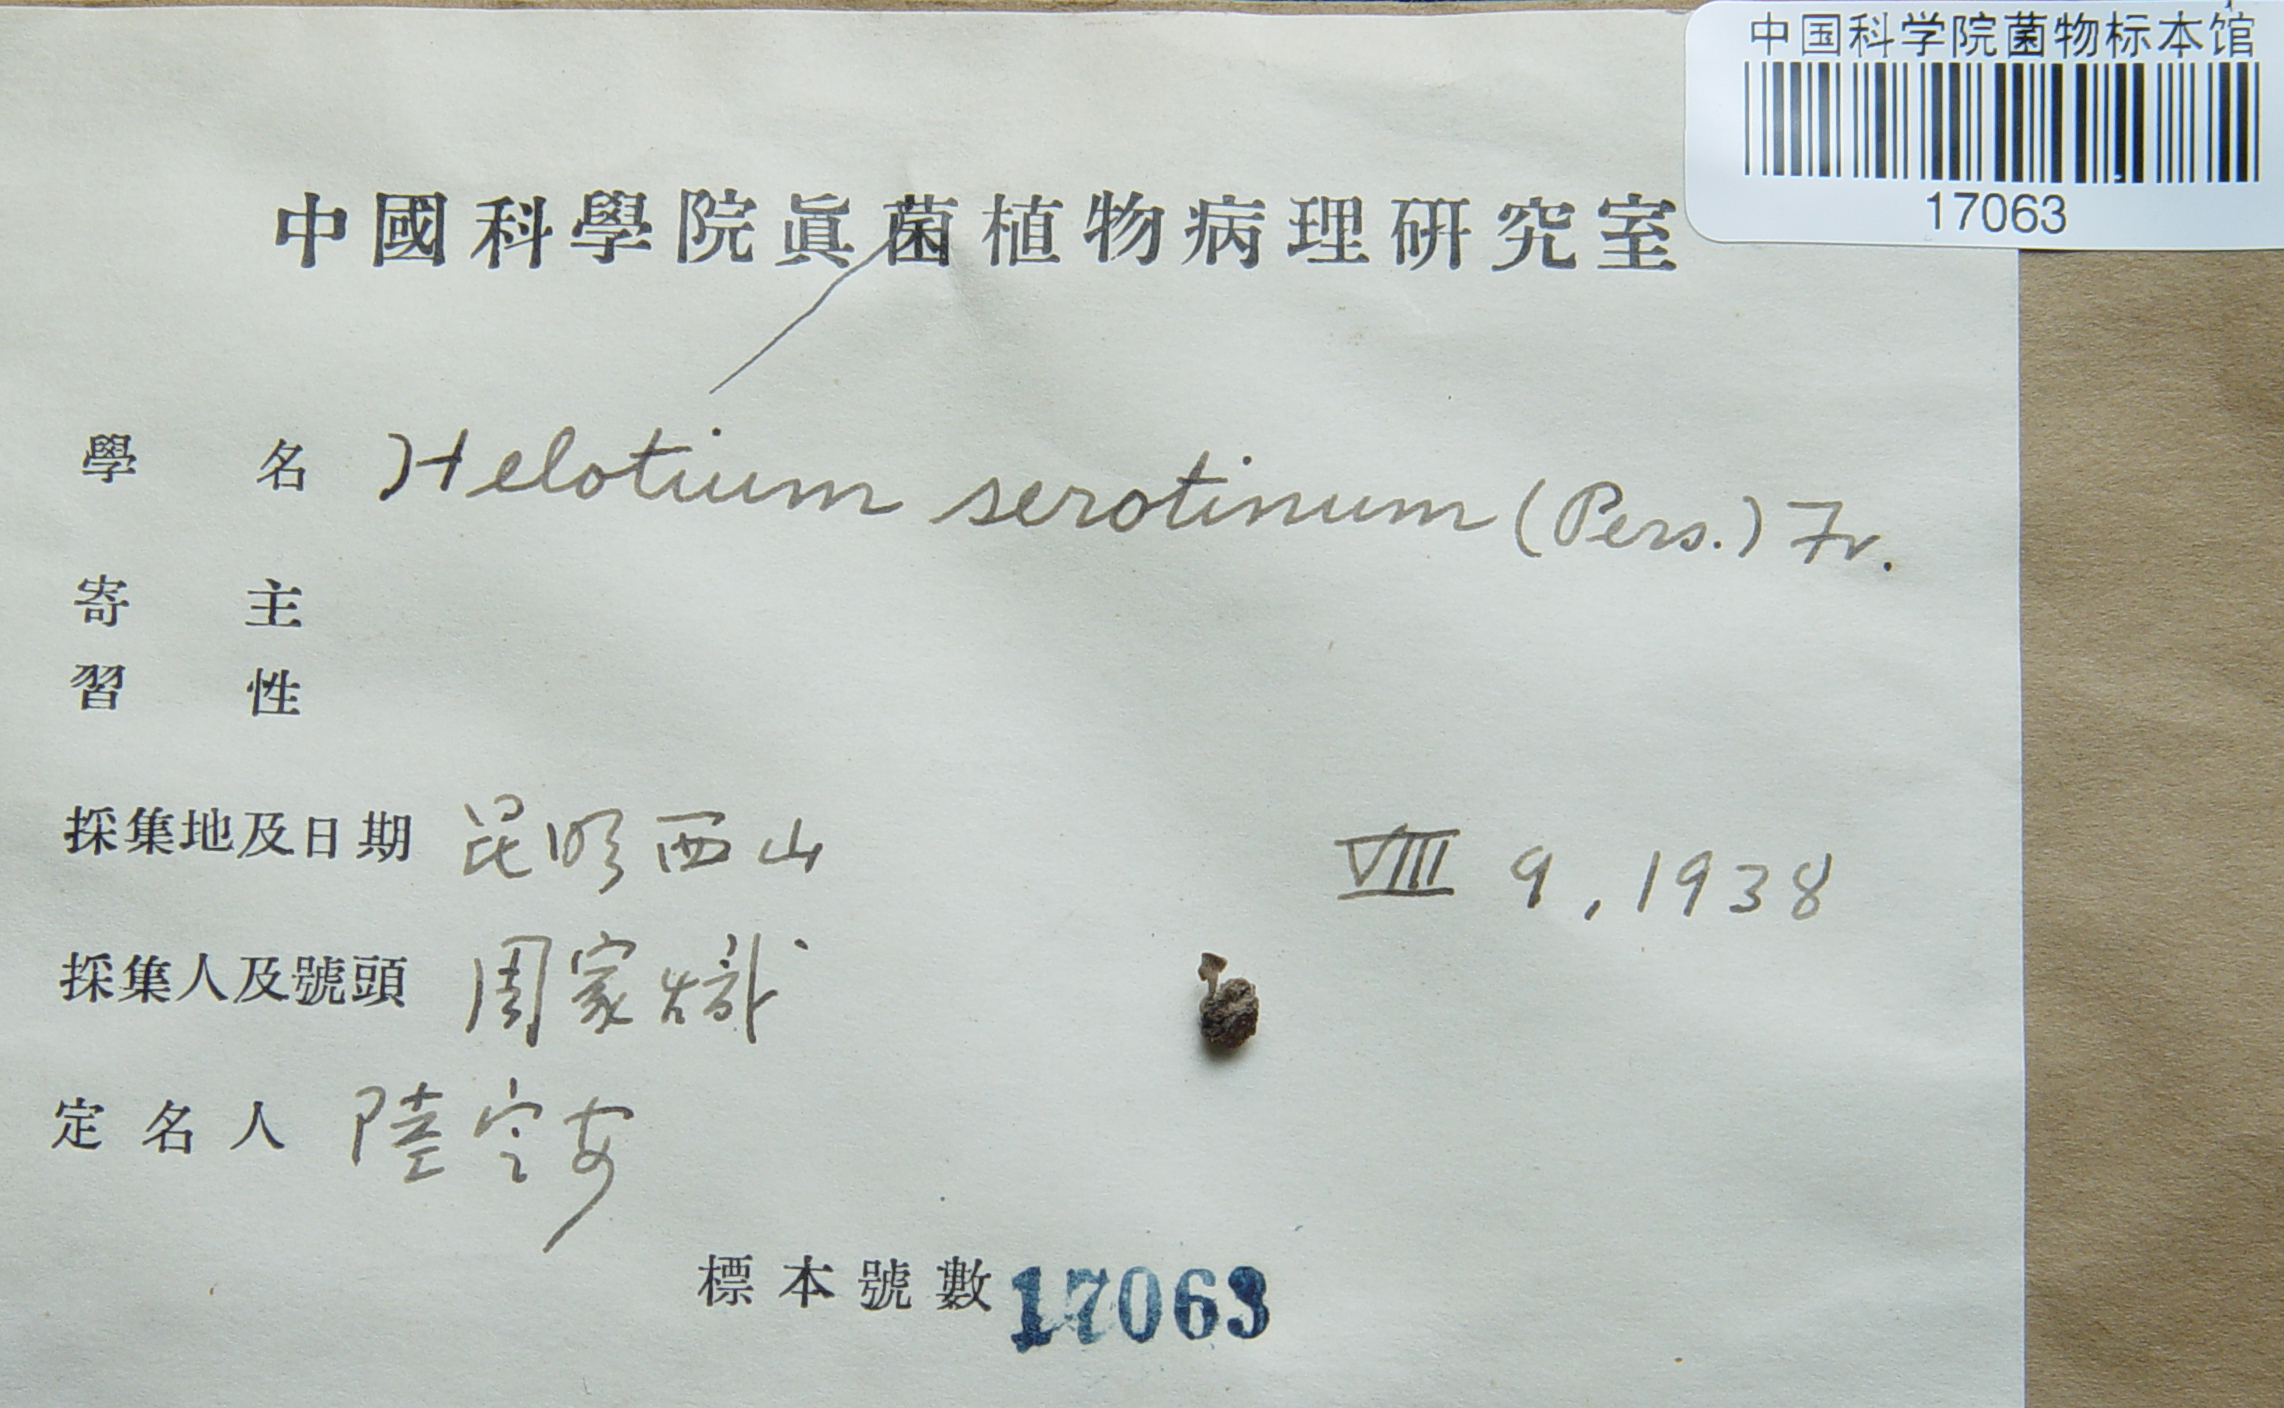 中国科学院菌物标本馆
17063
中國科學院眞菌植物病理研究室
學名 Helotium serotinum (Pers.) Fr.
寄主
習性
採集地及日期 昆明西山 VIII 9, 1938
採集人及號頭 周家熾
定名人 陸定安
標本號數 17063